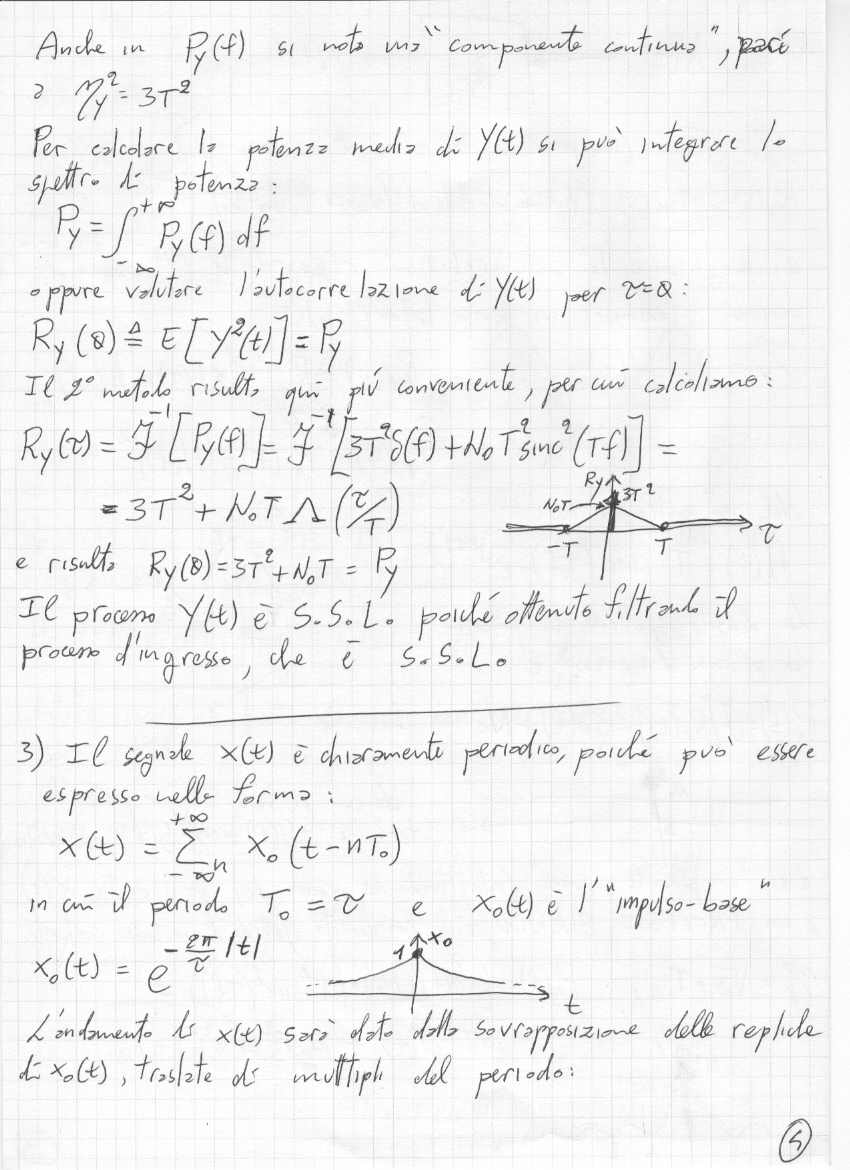 Anche in Py(f) si nota una "componente continua", pari
a η_Y² = 3T²
Per calcolare la potenza media di Y(t) si può integrare lo
spettro di potenza:
P_Y = ∫_{-∞}^{+∞} P_Y(f) df
oppure valutare l'autocorrelazione di Y(t) per τ=0:
R_Y(0) ≜ E[Y²(t)] = P_Y
Il 2° metodo risulta qui più conveniente, per cui calcoliamo:
R_Y(τ) = F⁻¹[P_Y(f)] = F⁻¹[3T²δ(f) + N₀T² sinc²(Tf)] =
= 3T² + N₀T Λ(τ/T)
R_Y 3T² N₀T -T T τ
e risulta R_Y(0) = 3T² + N₀T = P_Y
Il processo Y(t) è S.S.L. poiché ottenuto filtrando il
processo d'ingresso, che è S.S.L.
3) Il segnale x(t) è chiaramente periodico, poiché può essere
espresso nella forma:
x(t) = Σ_{-∞}^{+∞}_n x₀(t-nT₀)
in cui il periodo T₀ = τ e x₀(t) è l'"impulso-base"
x₀(t) = e^{-2π/τ |t|}
1 x₀ t
L'andamento di x(t) sarà dato dalla sovrapposizione delle repliche
di x₀(t), traslate di multipli del periodo: